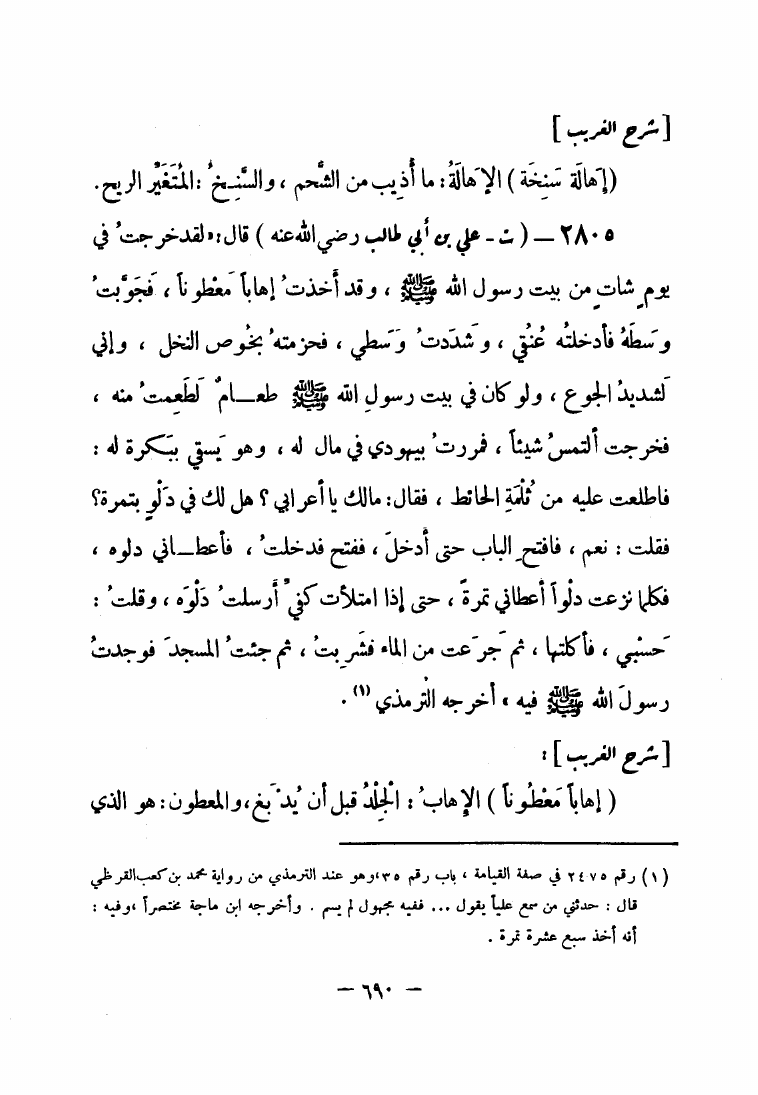 [ شرح الغريب ]
( إهَالَة سَنِخَة ) الإِهَالَةُ : ما أُذِيب من الشَّحم ، والسَّنِـخُ : المُتَغَيِّر الريح .
٢٨٠٥ — ( ت - علي بن أبي طالب رضي الله عنه ) قال : « لقد خرجتُ في
يومٍ شاتٍ من بيت رسول الله ﷺ ، وقد أخذتُ إهاباً مَعْطوناً ، فَجَوَّبتُ
وسَطَهُ فأدخلتُه عُنُقي ، وشَدَدتُ وَسَطي ، فحزمتهُ بخُوص النخل ، وإني
لَشديدُ الجوع ، ولو كان في بيت رسولِ الله ﷺ طعـــامٌ لَطَعِمتُ منه ،
فخرجت ألتمسُ شيئاً ، فمررتُ بيهودي في مال له ، وهو يَسقي ببَكرة له :
فاطلعت عليه من ثُلْمَةِ الحائط ، فقال : مالك يا أعرابي ؟ هل لك في دَلْوٍ بتمرة؟
فقلت : نعم ، فافتحِ الباب حتى أدخلَ ، ففتح فدخلتُ ، فأعطـــاني دلوه ،
فكلما نزعت دلْواً أعطاني تمرةً ، حتى إذا امتلأت كفيِّ أرسلتُ دَلْوَه ، وقلتُ :
حَسْبي ، فأكلتها ، ثم جَرَعت من الماء فشَرِبتُ ، ثم جئتُ المسجدَ فوجدتُ
رسولَ الله ﷺ فيه » أخرجه الترمذي (١) .
[ شرح الغريب ] :
( إهاباً مَعْطُوناً ) الإهابُ : الجِلْدُ قبل أن يُدْبَغ ، والمعطون : هو الذي
(١) رقم ٢٤٧٥ في صفة القيامة ، باب رقم ٣٥ ، وهو عند الترمذي من رواية محمد بن كعب القرظي
قال : حدثني من سمع علياً يقول ... ففيه مجهول لم يسم . وأخرجه ابن ماجة مختصراً ، وفيه :
أنه أخذ سبع عشرة تمرة .
— ٦٩٠ —